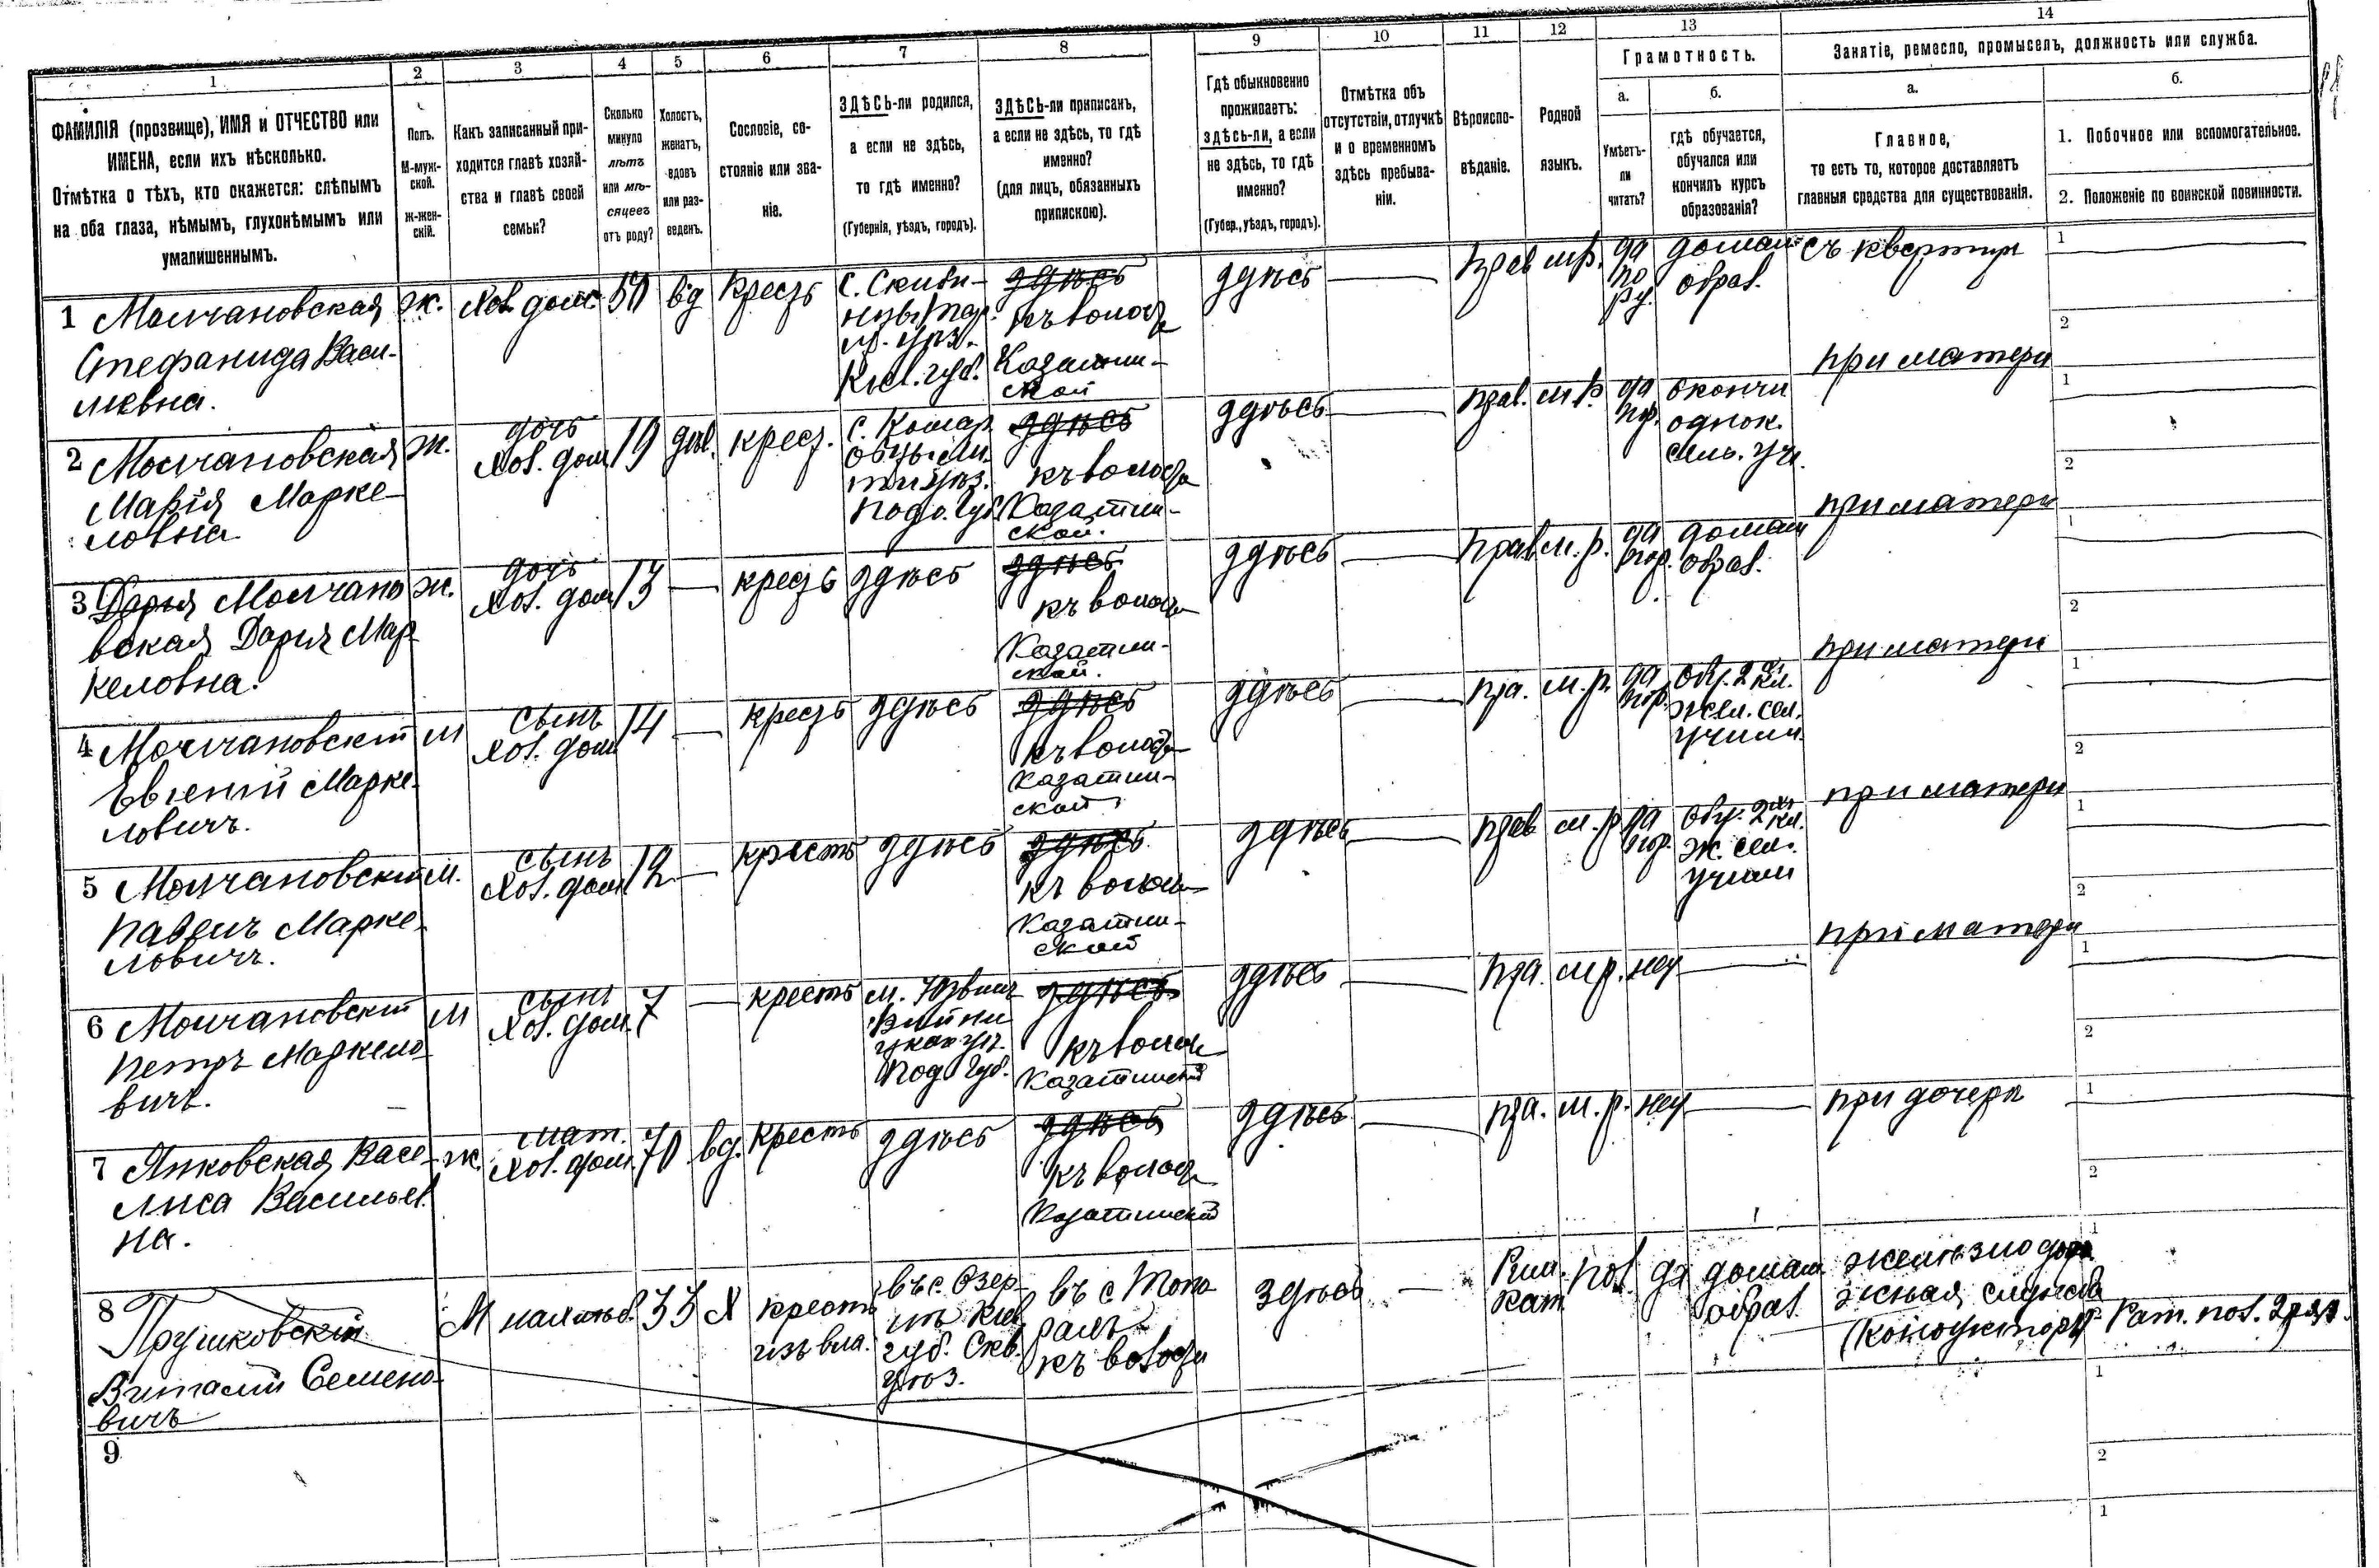 1
2
3
4
5
6
7
8
9
10
11
12
13
14
ФАМИЛІЯ (прозвище), ИМЯ и ОТЧЕСТВО или
ИМЕНА, если ихъ нѣсколько.
Отмѣтка о тѣхъ, кто окажется: слѣпымъ
на оба глаза, нѣмымъ, глухонѣмымъ или
умалишеннымъ.
Полъ.
М-муж-
ской.
Ж-жен-
скій.
Какъ записанный при-
ходится главѣ хозяй-
ства и главѣ своей
семьи?
Сколько
минуло
лѣтъ
или мѣ-
сяцевъ
отъ роду?
Холостъ,
женатъ,
вдовъ
или раз-
веденъ.
Сословіе, со-
стояніе или зва-
ніе.
ЗДѢСЬ-ли родился,
а если не здѣсь,
то гдѣ именно?
(Губернія, уѣздъ, городъ).
ЗДѢСЬ-ли приписанъ,
а если не здѣсь, то гдѣ
именно?
(для лицъ, обязанныхъ
припискою).
Гдѣ обыкновенно
проживаетъ:
здѣсь-ли, а если
не здѣсь, то гдѣ
именно?
(Губер., уѣздъ, городъ).
Отмѣтка объ
отсутствіи, отлучкѣ
и о временномъ
здѣсь пребыва-
ніи.
Вѣроиспо-
вѣданіе.
Родной
языкъ.
Грамотность.
а.
Умѣетъ-
ли
читать?
б.
гдѣ обучается,
обучался или
кончилъ курсъ
образованія?
Занятіе, ремесло, промыселъ, должность или служба.
а.
Главное,
то есть то, которое доставляетъ
главныя средства для существованія.
б.
1. Побочное или вспомогательное.
2. Положеніе по воинской повинности.
1 Молчановская
Стефанида Васи-
лівна.
ж.
Хоз. дом.
50
вд
кресть
с. Скиби-
нцы Тар.
уѣз.
Кіев. губ.
здѣсь
къ волос
Казатин-
ской
здѣсь
прав
м.р.
да
по
ру.
домаш
образ.
съ квартиры
1
2
2 Молчановская
Марія Марке-
ловна
ж.
дочь
Хоз. дом
19
дѣв.
крест.
с. Комар
овцы Ли-
тин уѣз.
Подо. губ.
здѣсь
къ волост
Казатин-
ской.
здѣсь
прав.
м.р.
да
пр.
окончи
однок.
сель. уч.
при матери
1
2
3 Дарья Молчано
вская Дарія Мар
келовна.
ж.
дочь
Хоз. дом
13
кресть
здѣсь
здѣсь
къ волост
Казатин-
ской.
здѣсь
прав
м.р.
да
пор.
домаш
образ.
при матери
1
2
4 Молчановскій
Евгеній Марке-
ловичъ.
м
сынъ
Хоз. дом
14
кресть
здѣсь
здѣсь
къ волост
Казатин-
ской
здѣсь
пра.
м.р.
да
пор.
обу. 2 кл.
жел. сел.
учили.
при матери
1
2
5 Молчановскій
Павелъ Марке-
ловичъ.
м.
сынъ
Хоз. дом
12
кресть
здѣсь
здѣсь
къ волост
Казатин-
ской
здѣсь
прав
м.р
да
пор.
обу. 2 кл.
ж. сел.
учили
при матери
1
2
6 Молчановскій
Петръ Маркело
вичъ.
м
сынъ
Хоз. дом.
7
кресть
м. Юзвин
Винни
цкаго уѣ.
Под губ.
здѣсь
къ волост
Казатинской
здѣсь
пра.
м.р.
неу
при матери
1
2
7 Янковская Васе-
лиса Васильев
на.
ж.
мат.
Хоз. дом.
70
вд.
кресть
здѣсь
здѣсь
къ волост
Казатинской
здѣсь
пра.
м.р.
неу
при дочери
1
2
8
Прушковскій
Виталій Семено
вичъ
М
33
Х
кресть
изъ вла.
въ с. Озер
нѣ Кіев
губ. Скв.
уѣз.
въ с. Топо
рахъ
къ волости
здѣсь
Рим.
Кат
пол
да
домаш
образ
желѣзно доро
жная служба
(кондукторъ)
1
Рат. пол. 2 разр.
1
9
2
1